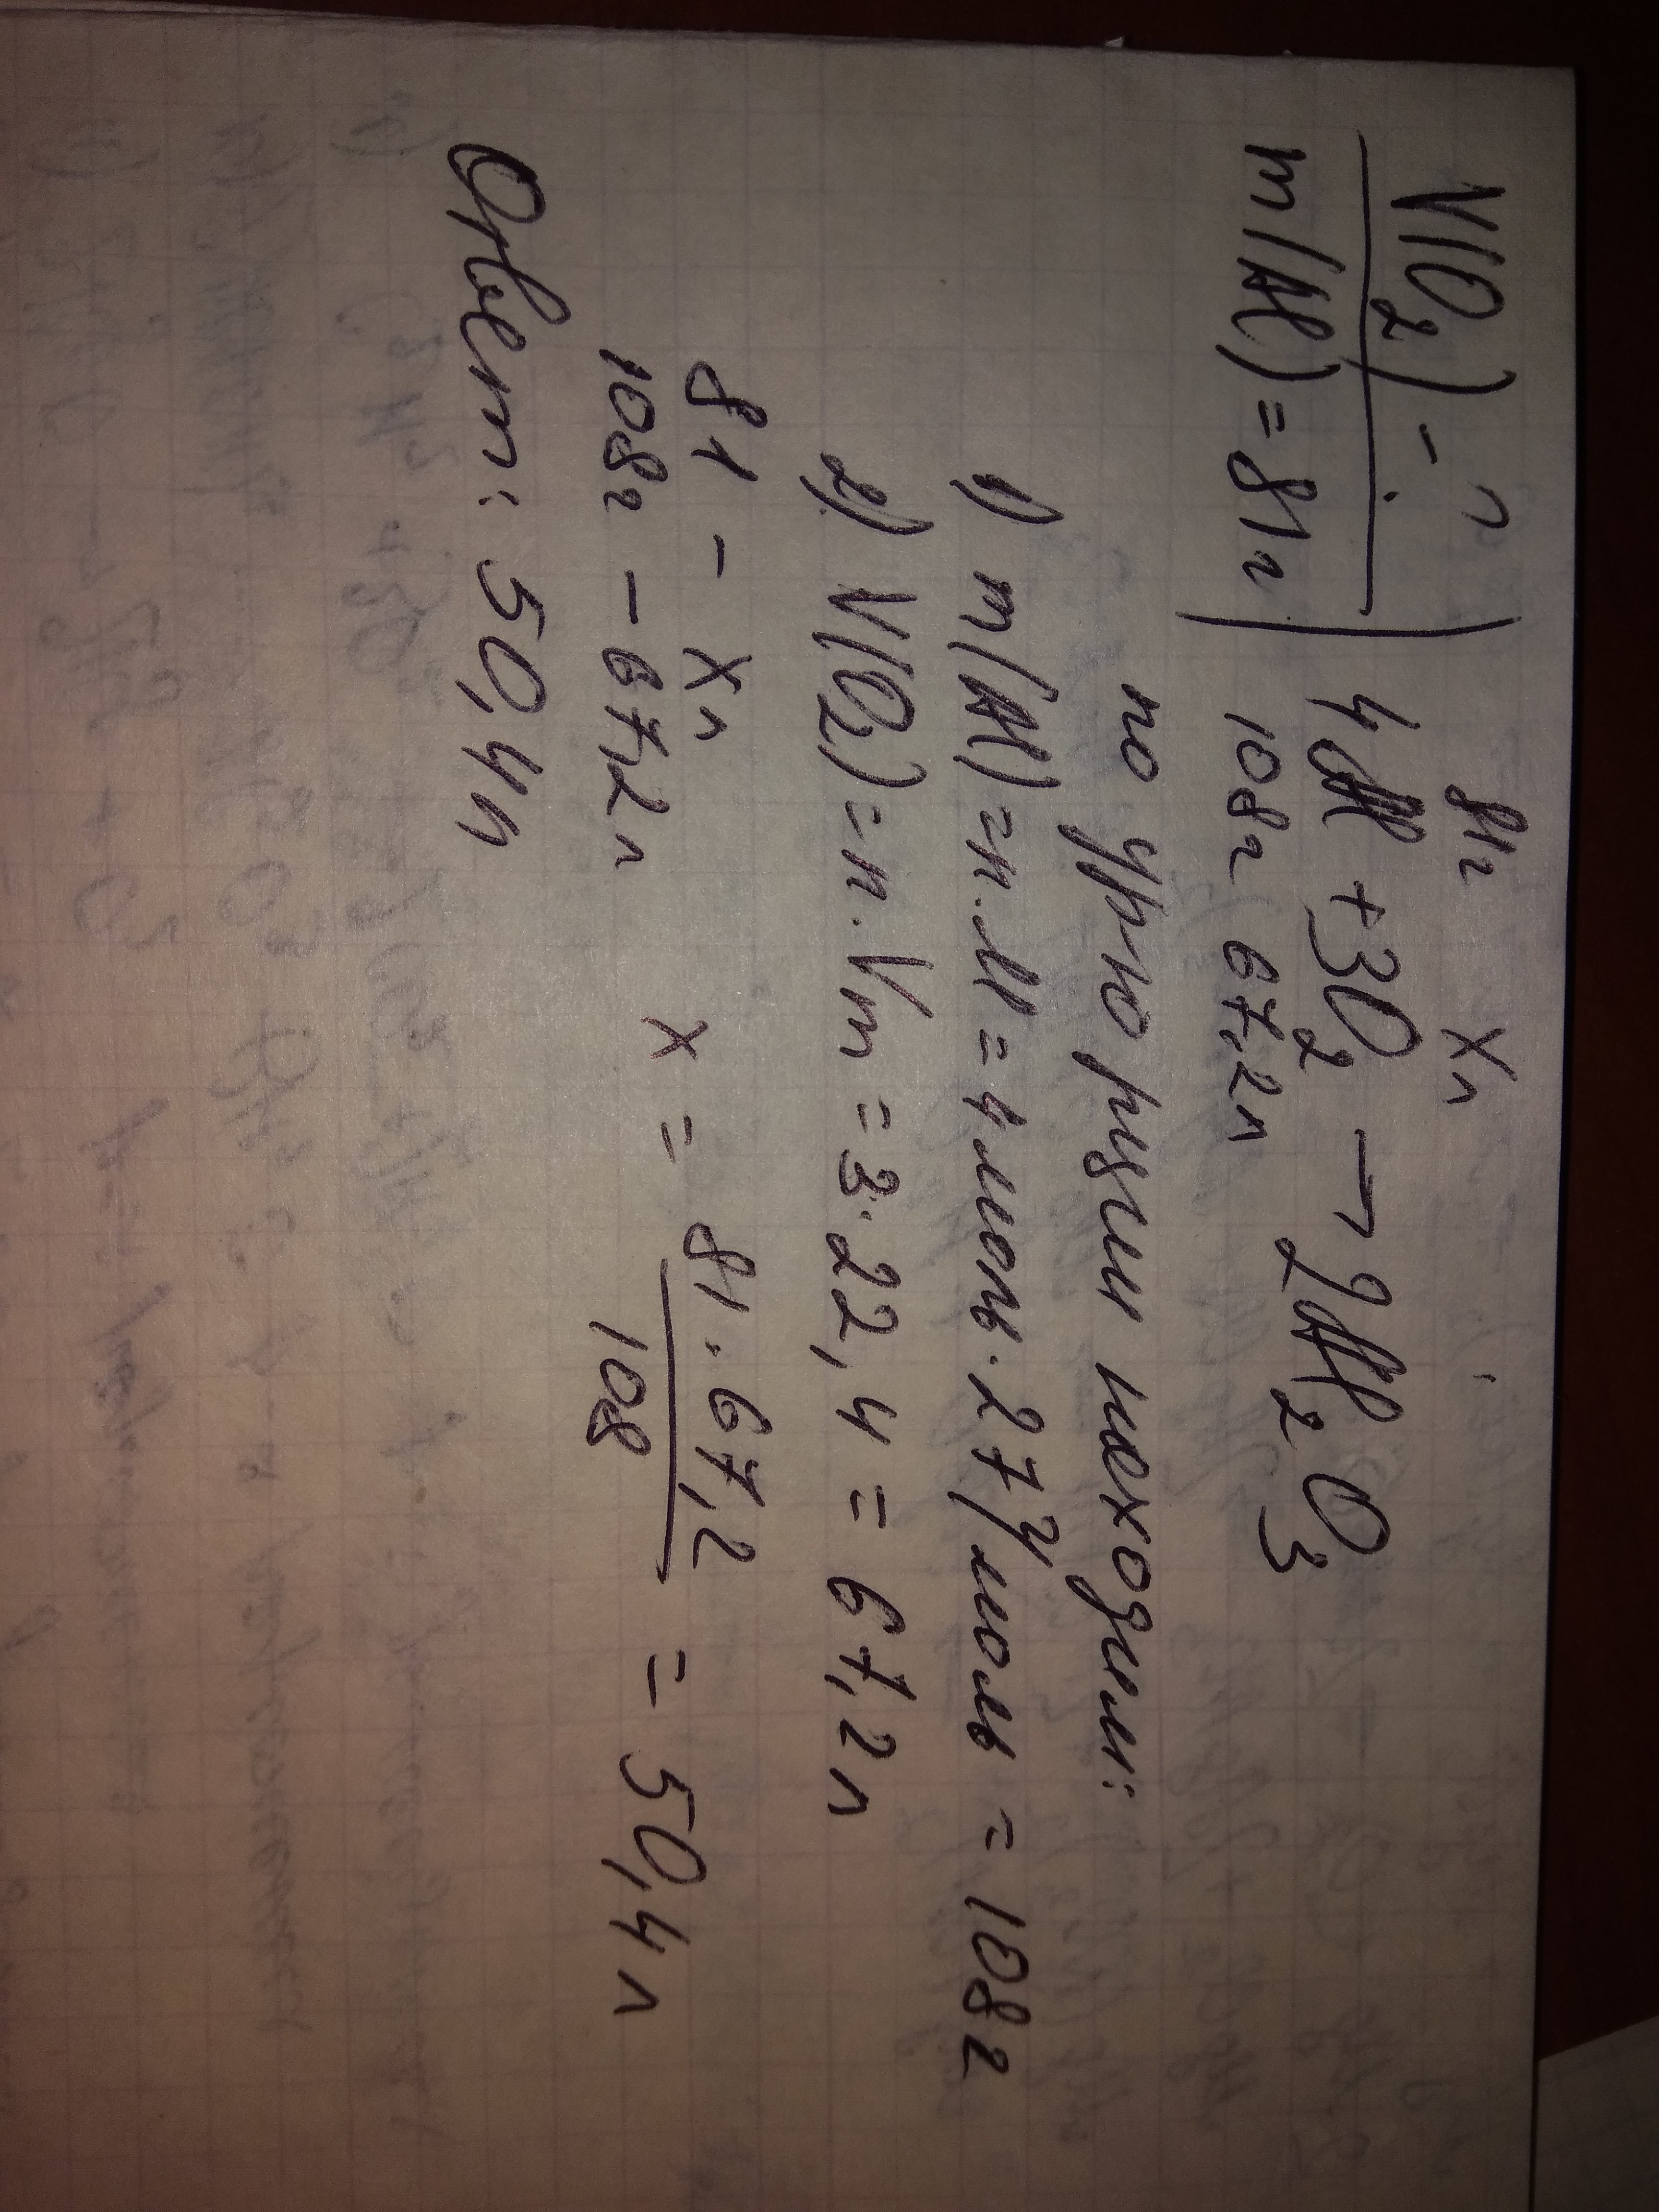 V(O₂) - л
m(Al) = 81г
81г xл
4Al + 3O₂ → 2Al₂O₃
108г 67,2л
по ур-ю р-ции находим:
1) m(Al) = n · M = 4 моль · 27 г/моль = 108 г
2) V(O₂) = n · Vm = 3 · 22,4 = 67,2 л
81 - xл
108г - 67,2 л
x = 81 · 67,2 / 108 = 50,4 л
Ответ: 50,4 л